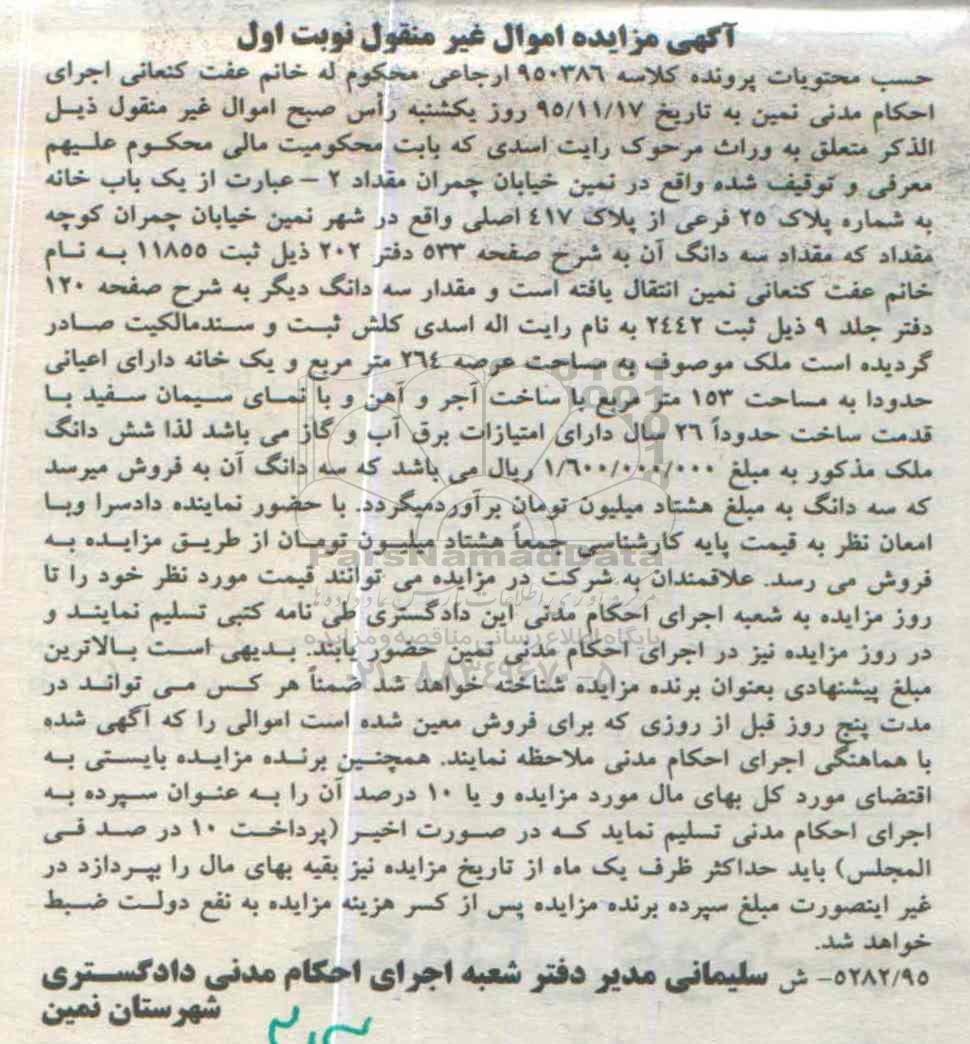 آگهی مزایده اموال غیر منقول نوبت اول
حسب محتویات پرونده کلاسه ۹۵۰۳۸۶ ارجاعی محکوم له خانم عفت کنعانی اجرای
احکام مدنی نمین به تاریخ ۹۵/۱۱/۱۷ روز یکشنبه رأس صبح اموال غیر منقول ذیل
الذکر متعلق به وراث مرحوک رایت اسدی که بابت محکومیت مالی محکوم علیهم
معرفی و توقیف شده واقع در نمین خیابان چمران مقداد ۲ – عبارت از یک باب خانه
به شماره پلاک ۲۵ فرعی از پلاک ۴۱۷ اصلی واقع در شهر نمین خیابان چمران کوچه
مقداد که مقداد سه دانگ آن به شرح صفحه ۵۳۳ دفتر ۲۰۲ ذیل ثبت ۱۱۸۵۵ به نام
خانم عفت کنعانی نمین انتقال یافته است و مقدار سه دانگ دیگر به شرح صفحه ۱۲۰
دفتر جلد ۹ ذیل ثبت ۲۴۴۲ به نام رایت اله اسدی کلش ثبت و سندمالکیت صادر
گردیده است ملک موصوف به مساحت عرصه ۲۶۴ متر مربع و یک خانه دارای اعیانی
حدودا به مساحت ۱۵۳ متر مربع با ساخت آجر و آهن و با نمای سیمان سفید با
قدمت ساخت حدوداً ۲۶ سال دارای امتیازات برق آب و گاز می باشد لذا شش دانگ
ملک مذکور به مبلغ ۱/۶۰۰/۰۰۰/۰۰۰ ریال می باشد که سه دانگ آن به فروش میرسد
که سه دانگ به مبلغ هشتاد میلیون تومان برآوردمیگردد. با حضور نماینده دادسرا وبا
امعان نظر به قیمت پایه کارشناسی جمعاً هشتاد میلیون تومان از طریق مزایده به
فروش می رسد. علاقمندان به شرکت در مزایده می توانند قیمت مورد نظر خود را تا
روز مزایده به شعبه اجرای احکام مدنی این دادگستری طی نامه کتبی تسلیم نمایند و
در روز مزایده نیز در اجرای احکام مدنی نمین حضور یابند. بدیهی است بالاترین
مبلغ پیشنهادی بعنوان برنده مزایده شناخته خواهد شد ضمناً هر کس می تواند در
مدت پنج روز قبل از روزی که برای فروش معین شده است اموالی را که آگهی شده
با هماهنگی اجرای احکام مدنی ملاحظه نمایند. همچنین برنده مزایده بایستی به
اقتضای مورد کل بهای مال مورد مزایده و یا ۱۰ درصد آن را به عنوان سپرده به
اجرای احکام مدنی تسلیم نماید که در صورت اخیر (پرداخت ۱۰ در صد فی
المجلس) باید حداکثر ظرف یک ماه از تاریخ مزایده نیز بقیه بهای مال را بپردازد در
غیر اینصورت مبلغ سپرده برنده مزایده پس از کسر هزینه مزایده به نفع دولت ضبط
خواهد شد.
۵۲۸۲/۹۵- ش سلیمانی مدیر دفتر شعبه اجرای احکام مدنی دادگستری
شهرستان نمین
ParsNamadData
پایگاه اطلاع رسانی مناقصه و مزایده
۰۲۱-۸۸۳۴۹۶۷۰-۵